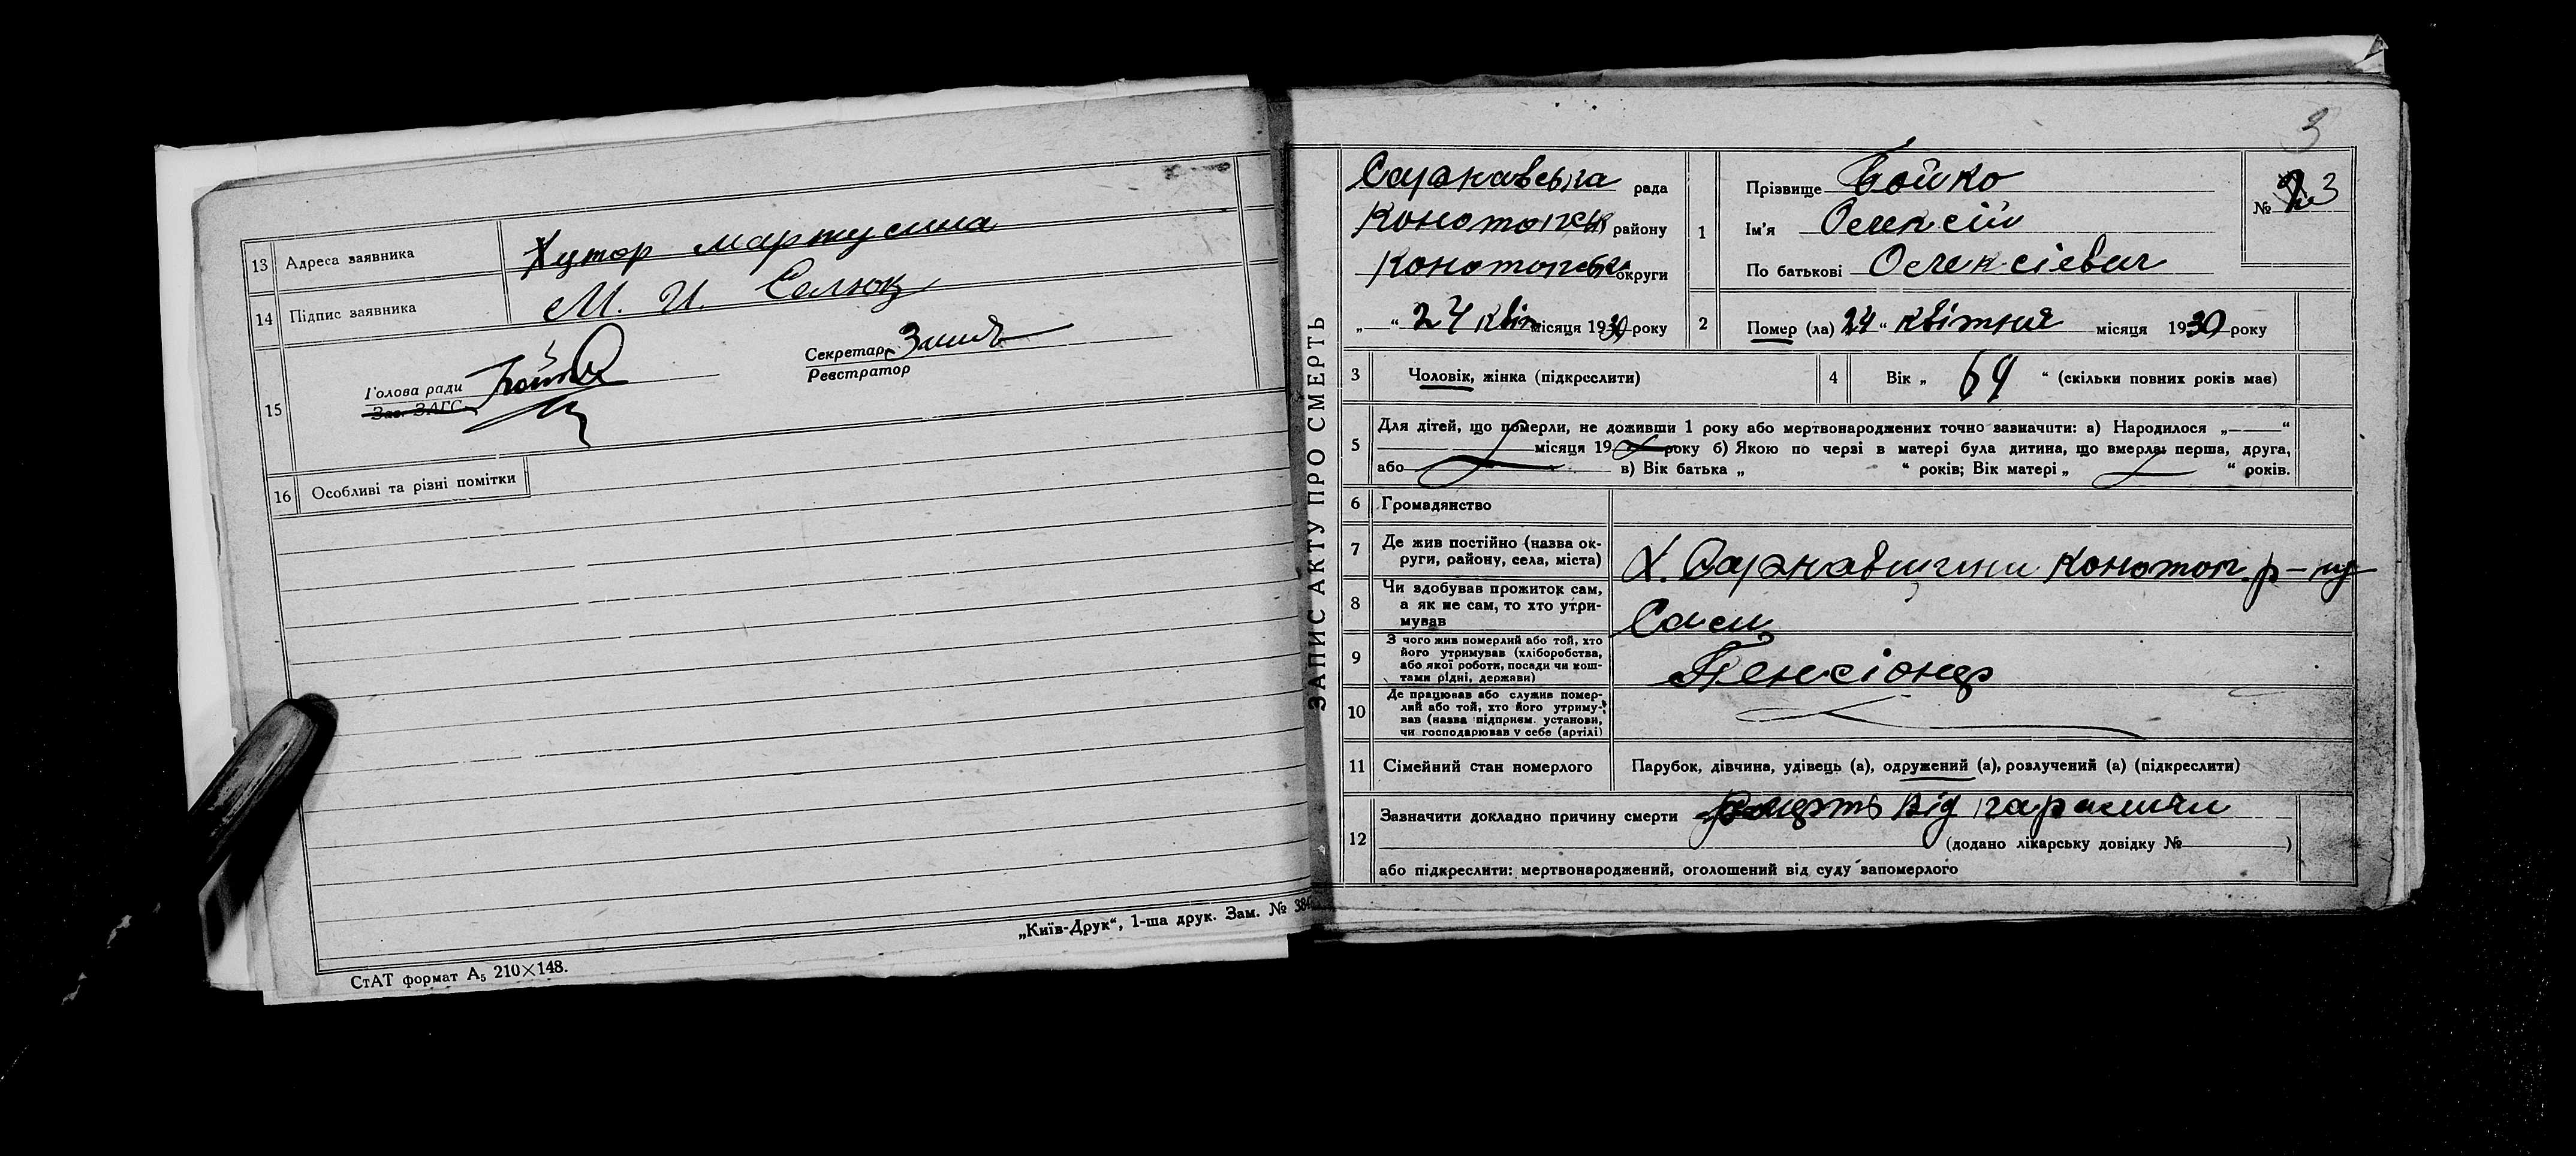 13 Адреса заявника Хутор
14 Підпис заявника М. И.
15 Голова ради
Зав. ЗАГС
Секретар
Реєстратор
16 Особливі та різні помітки
„Київ-Друк“, 1-ша друк. Зам. №
СтАТ формат А5 210×148.
3
ЗАПИС АКТУ ПРО СМЕРТЬ
рада
Конотопськ району
Конотопська округи
„ “ 24 квіт місяця 1930 року
1 Прізвище Бойко
Ім'я Олексій
По батькові Олексієвич
№ 3
2 Помер (ла) 24 “ квітня місяця 1930 року
3 Чоловік, жінка (підкреслити)
4 Вік „ 69 “ (скільки повних років має)
5 Для дітей, що померли, не доживши 1 року або мертвонароджених точно зазначити: а) Народилося „ “
місяця 19 року б) Якою по черзі в матері була дитина, що вмерла: перша, друга,
або в) Вік батька „ “ років; Вік матері „ “ років.
6 Громадянство
7 Де жив постійно (назва ок-
руги, району, села, міста)
Х. Конотоп. р-ну
8 Чи вдобував прожиток сам,
а як не сам, то хто утри-
мував
Сам
9 З чого жив померлий або той, хто
його утримував (хліборобства,
або якої роботи, посади чи кош-
тами рідні, держави)
Пенсіонер
10 Де працював або служив помер-
лий або той, хто його утриму-
вав (назва підприєм. установи,
чи господарював у себе (артілі)
11 Сімейний стан померлого Парубок, дівчина, удівець (а), одружений (а), розлучений (а) (підкреслити)
12 Зазначити докладно причину смерти від
(додано лікарську довідку № )
або підкреслити: мертвонароджений, оголошений від суду запомерлого